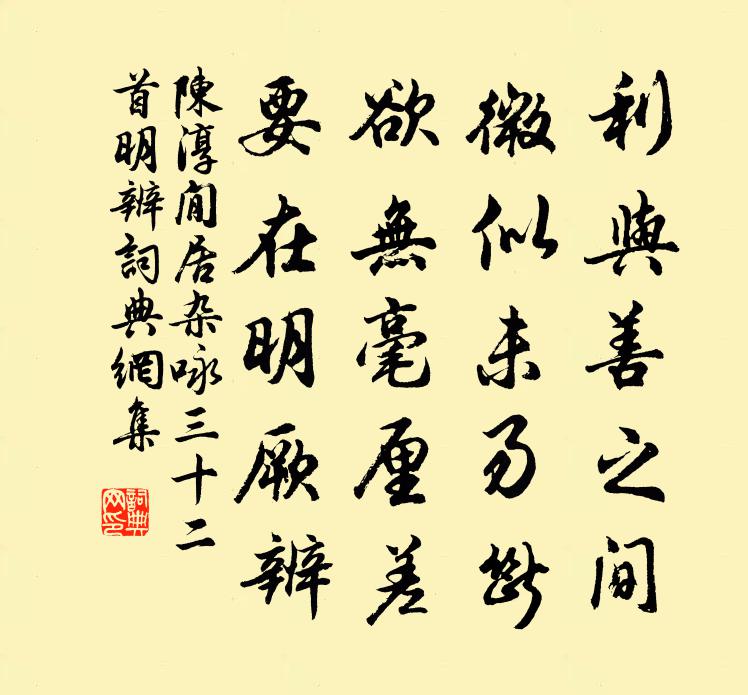 利與善之間
微似未易断
欲無毫厘差
要在明厥辨
陳淳閒居杂咏三十二
首明辨詞典網集
詞典
网印